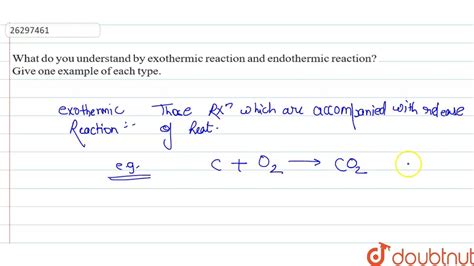 26297461
What do you understand by exothermic reaction and endothermic reaction?
Give one example of each type.
exothermic Those Rxⁿ which are accompanied with release
Reaction :- of Heat.
eg. C + O₂ → CO₂
doubtnut